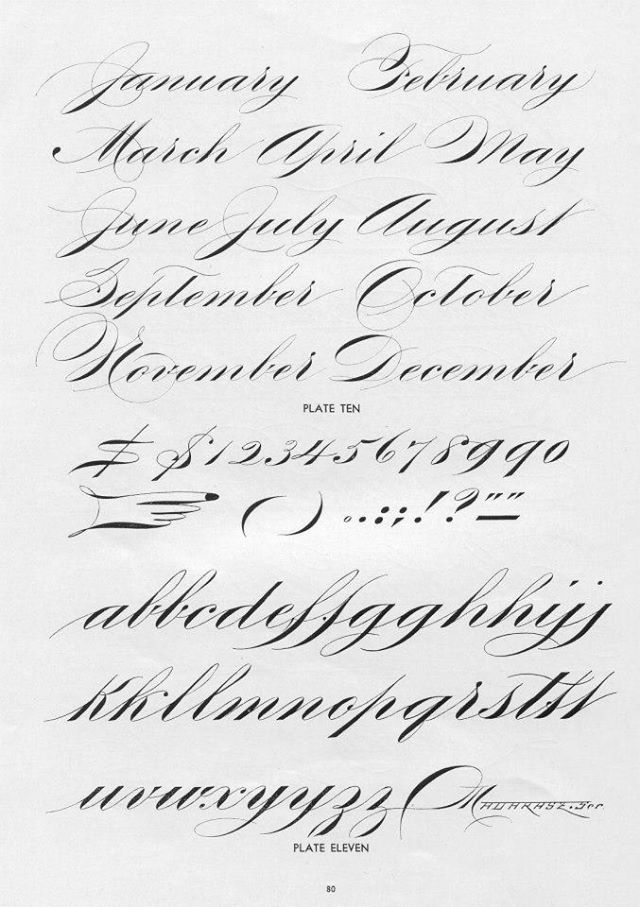 January February
March April May
June July August
September October
November December
PLATE TEN
$ $12345678990
( ) ..:;!?""
abbcdeffgghhijj
Kkkllmnopqrstttt
uvwxyyzz Madarasz. Scr.
PLATE ELEVEN
80